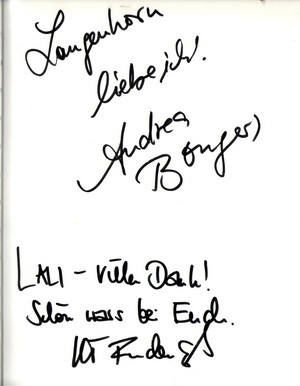 Langenhorn
liebe ich!
Andrea
Bongers
LALI - Vielen Dank!
Schön wars bei Euch.